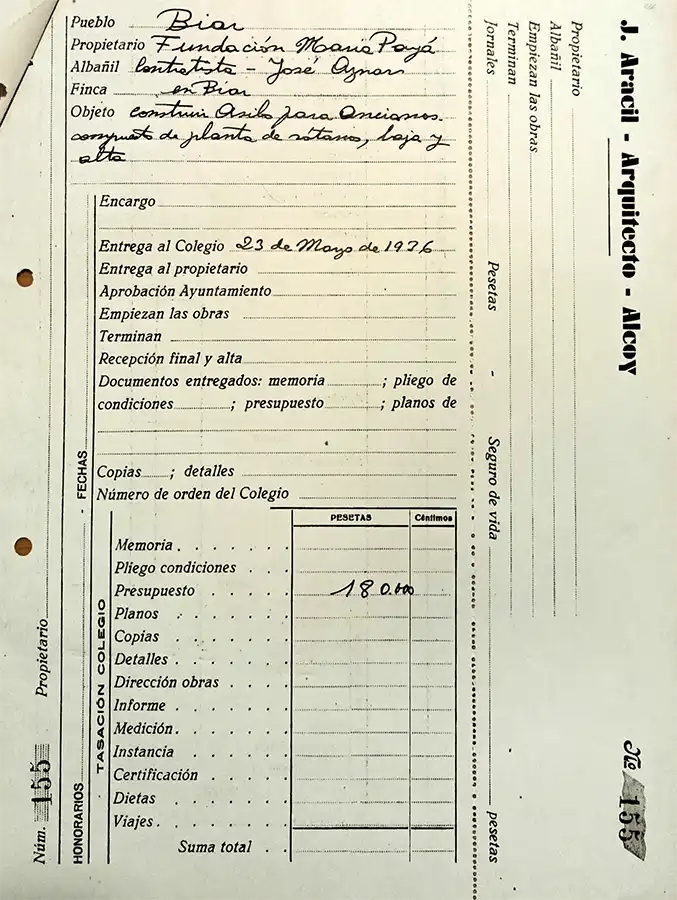 Pueblo Biar
Propietario Fundación Maria Payá
Albañil Contratista - José Aynar
Finca en Biar
Objeto construir Asilo para Ancianos.
compuesto de planta de sótanos, baja y
alta
Encargo
Entrega al Colegio 23 de Mayo de 1936
Entrega al propietario
Aprobación Ayuntamiento
Empiezan las obras
Terminan
Recepción final y alta
Documentos entregados: memoria ; pliego de
condiciones ; presupuesto ; planos de
Copias ; detalles
Número de orden del Colegio
FECHAS
PESETAS Céntimos
Memoria
Pliego condiciones
Presupuesto 180.000
Planos
Copias
Detalles
Dirección obras
Informe
Medición
Instancia
Certificación
Dietas
Viajes
Suma total
TASACIÓN COLEGIO
HONORARIOS
Núm. 155 Propietario
J. Aracil - Arquitecto - Alcoy
Nº 155
Propietario
Albañil
Empiezan las obras
Terminan
Jornales Pesetas - Seguro de vida pesetas